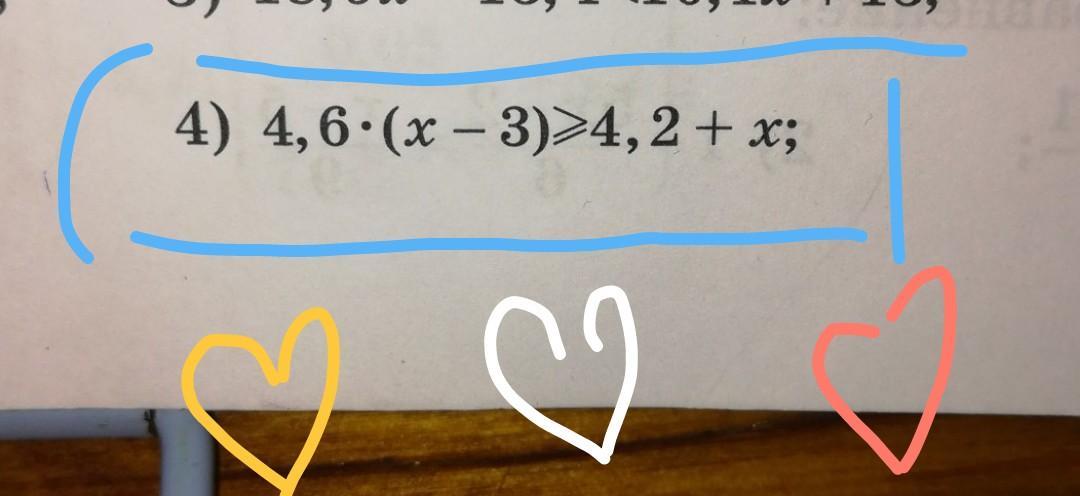 4) 4,6·(x – 3)⩾4,2 + x;